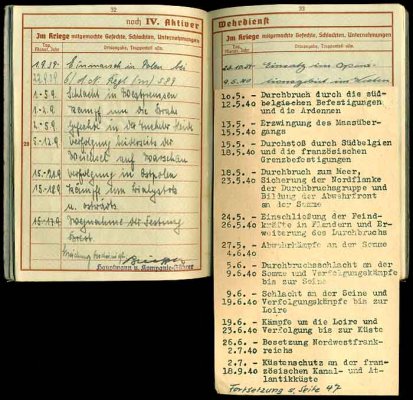 32
noch IV. Aktiver
Im Kriege mitgemachte Gefechte, Schlachten, Unternehmungen
Tag, Monat, Jahr
Ortsangabe, Truppenteil usw.
1.9.39 - Einmarsch in Polen bei
22.9.39
1.-5.9. Schlacht in Westpreussen
1.-2.9. Kampf um die Brahe
2.-5.9. Gefecht in der Tucheler Heide
5.-12.9. Verfolgung
auf Warschau
Verfolgung in Ostpolen
Kämpfe um Bialystok
u. ostwärts
15.-17.9. Wegnahme der Festung
Brest
Hauptmann u. Kompanie-Führer
33
Wehrdienst
Im Kriege mitgemachte Gefechte, Schlachten, Unternehmungen
Tag, Monat, Jahr
Ortsangabe, Truppenteil usw.
Einsatz im Opera-
9.5.40 tionsgebiet im Westen
10.5. - Durchbruch durch die süd-
12.5.40 belgischen Befestigungen
und die Ardennen
13.5. - Erzwingung des Maasüber-
14.5.40 gangs
15.5. - Durchstoß durch Südbelgien
17.5.40 und die französischen
Grenzbefestigungen
18.5. - Durchbruch zum Meer,
23.5.40 Sicherung der Nordflanke
der Durchbruchsgruppe und
Bildung der Abwehrfront
an der Somme
24.5. - Einschließung der Feind-
26.5.40 kräfte in Flandern und Er-
weiterung des Durchbruchs
27.5. - Abwehrkämpfe an der Somme
4.6.40
5.6. - Durchbruchsschlacht an der
9.6.40 Somme und Verfolgungskämpfe
bis zur Seine
9.6. - Schlacht an der Seine und
19.6.40 Verfolgungskämpfe bis zur
Loire
19.6. - Kämpfe um die Loire und
23.6.40 Verfolgung bis zur Küste
26.6. - Besetzung Nordwestfrank-
2.7.40 reichs
2.7. - Küstenschutz an der fran-
18.9.40 zösischen Kanal- und At-
lantikküste
Fortsetzung s. Seite 47